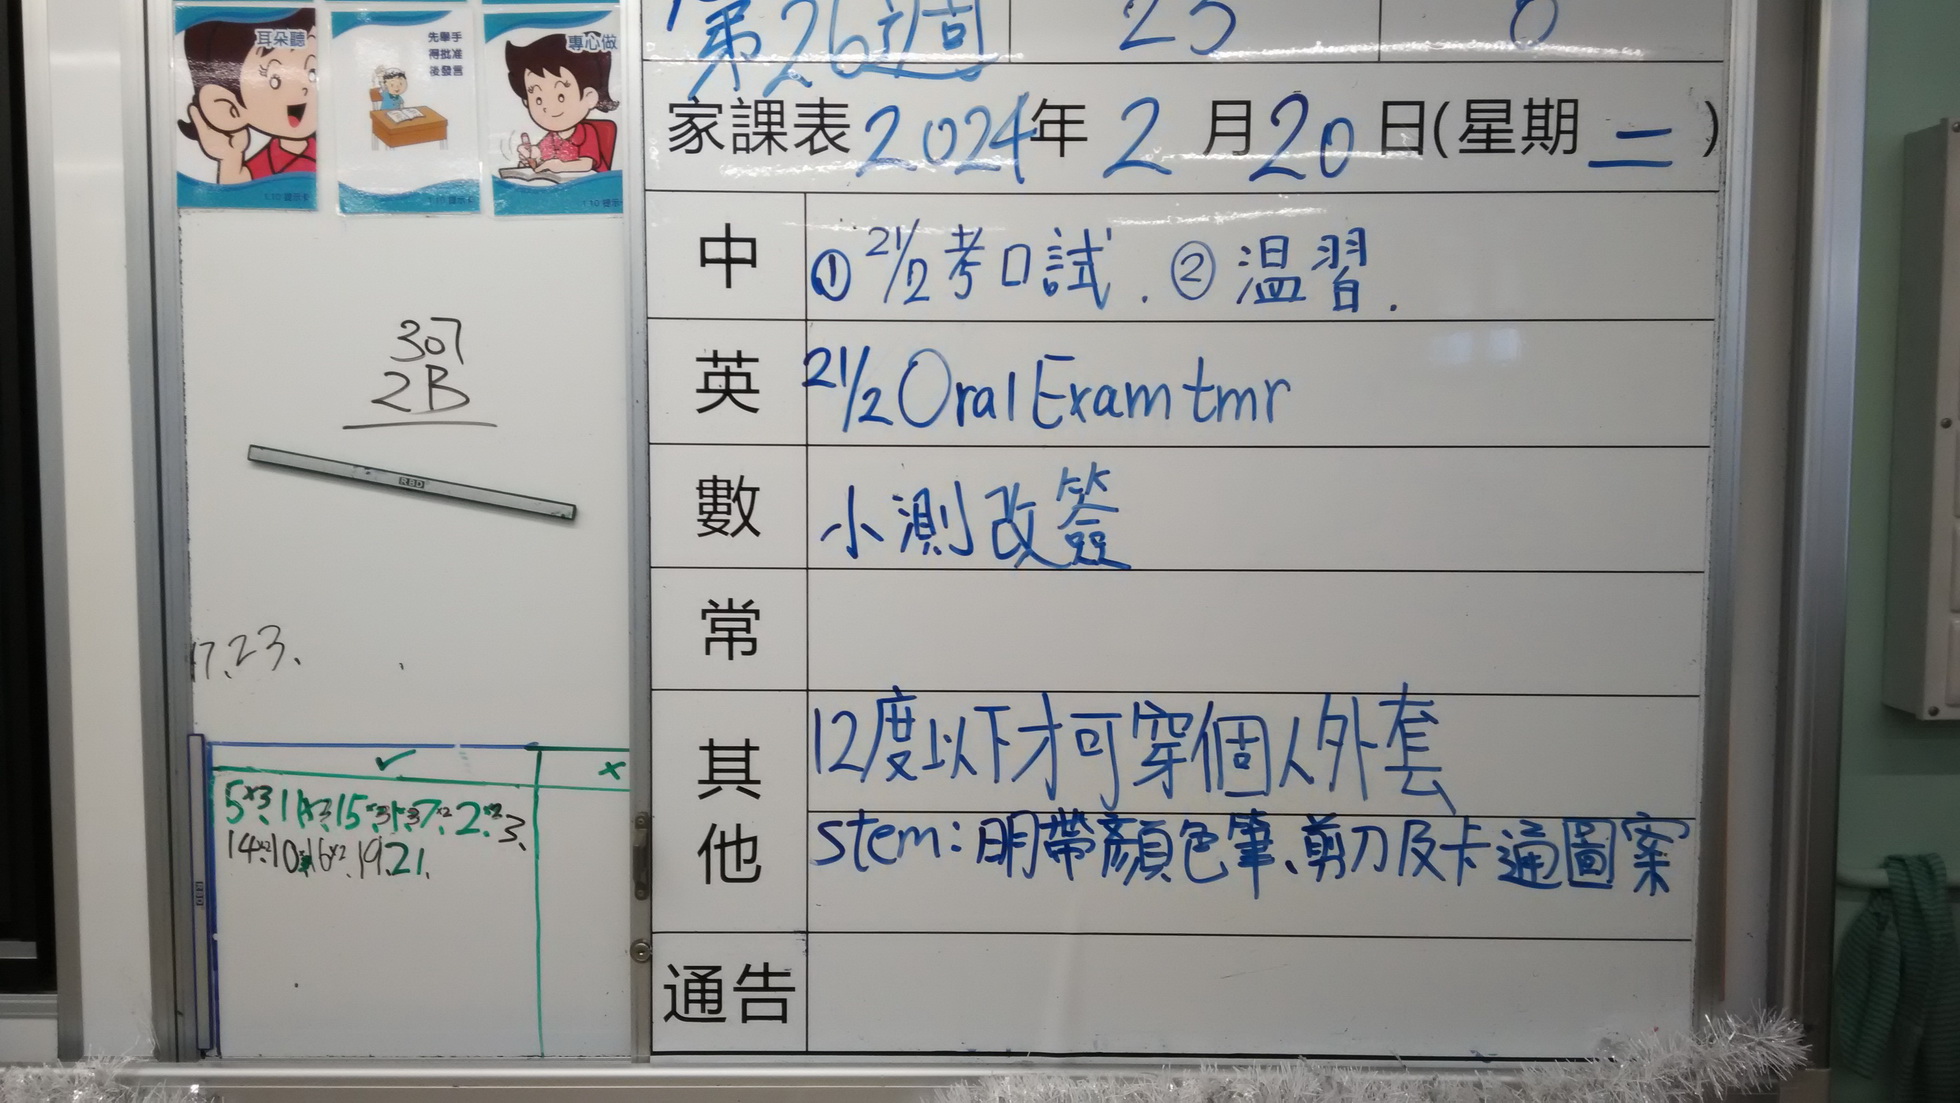 耳朵聽
先舉手
得批准
後發言
專心做
第26週 25 0
家課表2024年2月20日(星期二)
中 ①21/2考口試.②溫習.
英 21/2 Oral Exam tmr
數 小測改簽
常
其他 12度以下才可穿個人外套
stem:明帶顏色筆、剪刀及卡通圖案
通告
307
2B
17、23、
✓ ×
14×2、10、16×2、19、21、